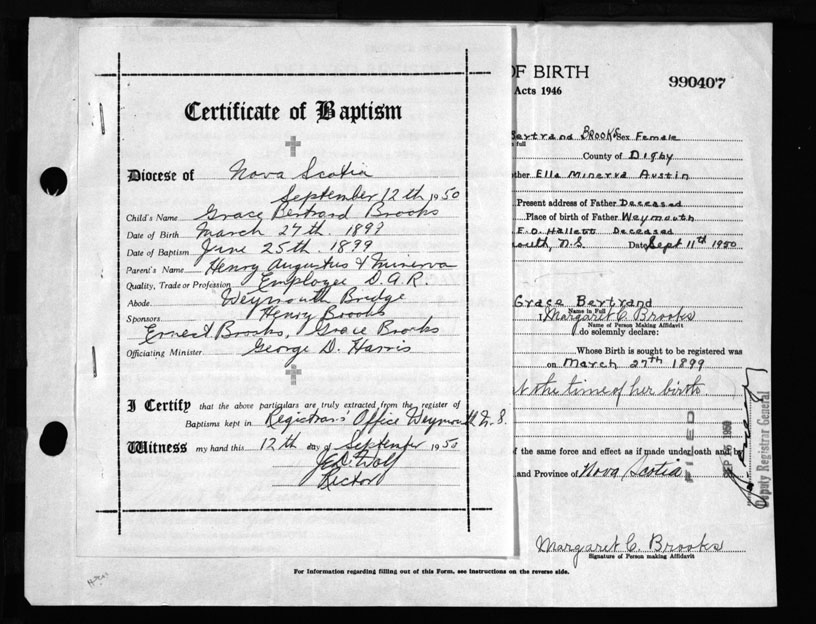 Certificate of Baptism
Diocese of Nova Scotia
September 12th 1950
Child's Name Grace Bertrand Brooks
Date of Birth March 27th. 1899
Date of Baptism June 25th. 1899
Parent's Name Henry Augustus & Minerva
Quality, Trade or Profession Employee D.A.R.
Abode. Weymouth Bridge
Sponsors Henry Brooks
Ernest Brooks, Grace Brooks
Officiating Minister George D. Harris
I Certify that the above particulars are truly extracted from the register of
Baptisms kept in Registrars' Office Weymouth N.S.
Witness my hand this 12th day of September 1950
Rector
OF BIRTH
Acts 1946
990407
Bertrand Brooks Sex Female
full
County of Digby
ther Ella Minerva Austin
Present address of Father Deceased
Place of birth of Father Weymouth
E.O. Hallett Deceased
outh, N.S. Date Sept 11th 1950
Grace Bertrand
Name in Full
I, Margaret C. Brooks
Name of Person Making Affidavit
do solemnly declare:
Whose Birth is sought to be registered was
on March 27th 1899
at the time of her birth.
f the same force and effect as if made under oath and by
and Province of Nova Scotia
FILED
SEP 15 1950
Deputy Registrar General
Margaret C. Brooks
Signature of Person making Affidavit
For Information regarding filling out of this Form, see instructions on the reverse side.